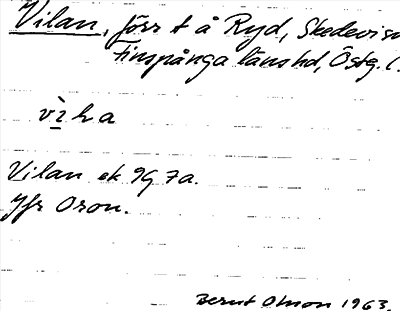 Vilan, förr t å Ryd, Skedevi sn
Finspånga läns hd, Östg. l.
vìla
Vilan ek 9G 7a.
Jfr Oron.
Bernt Olsson 1963.